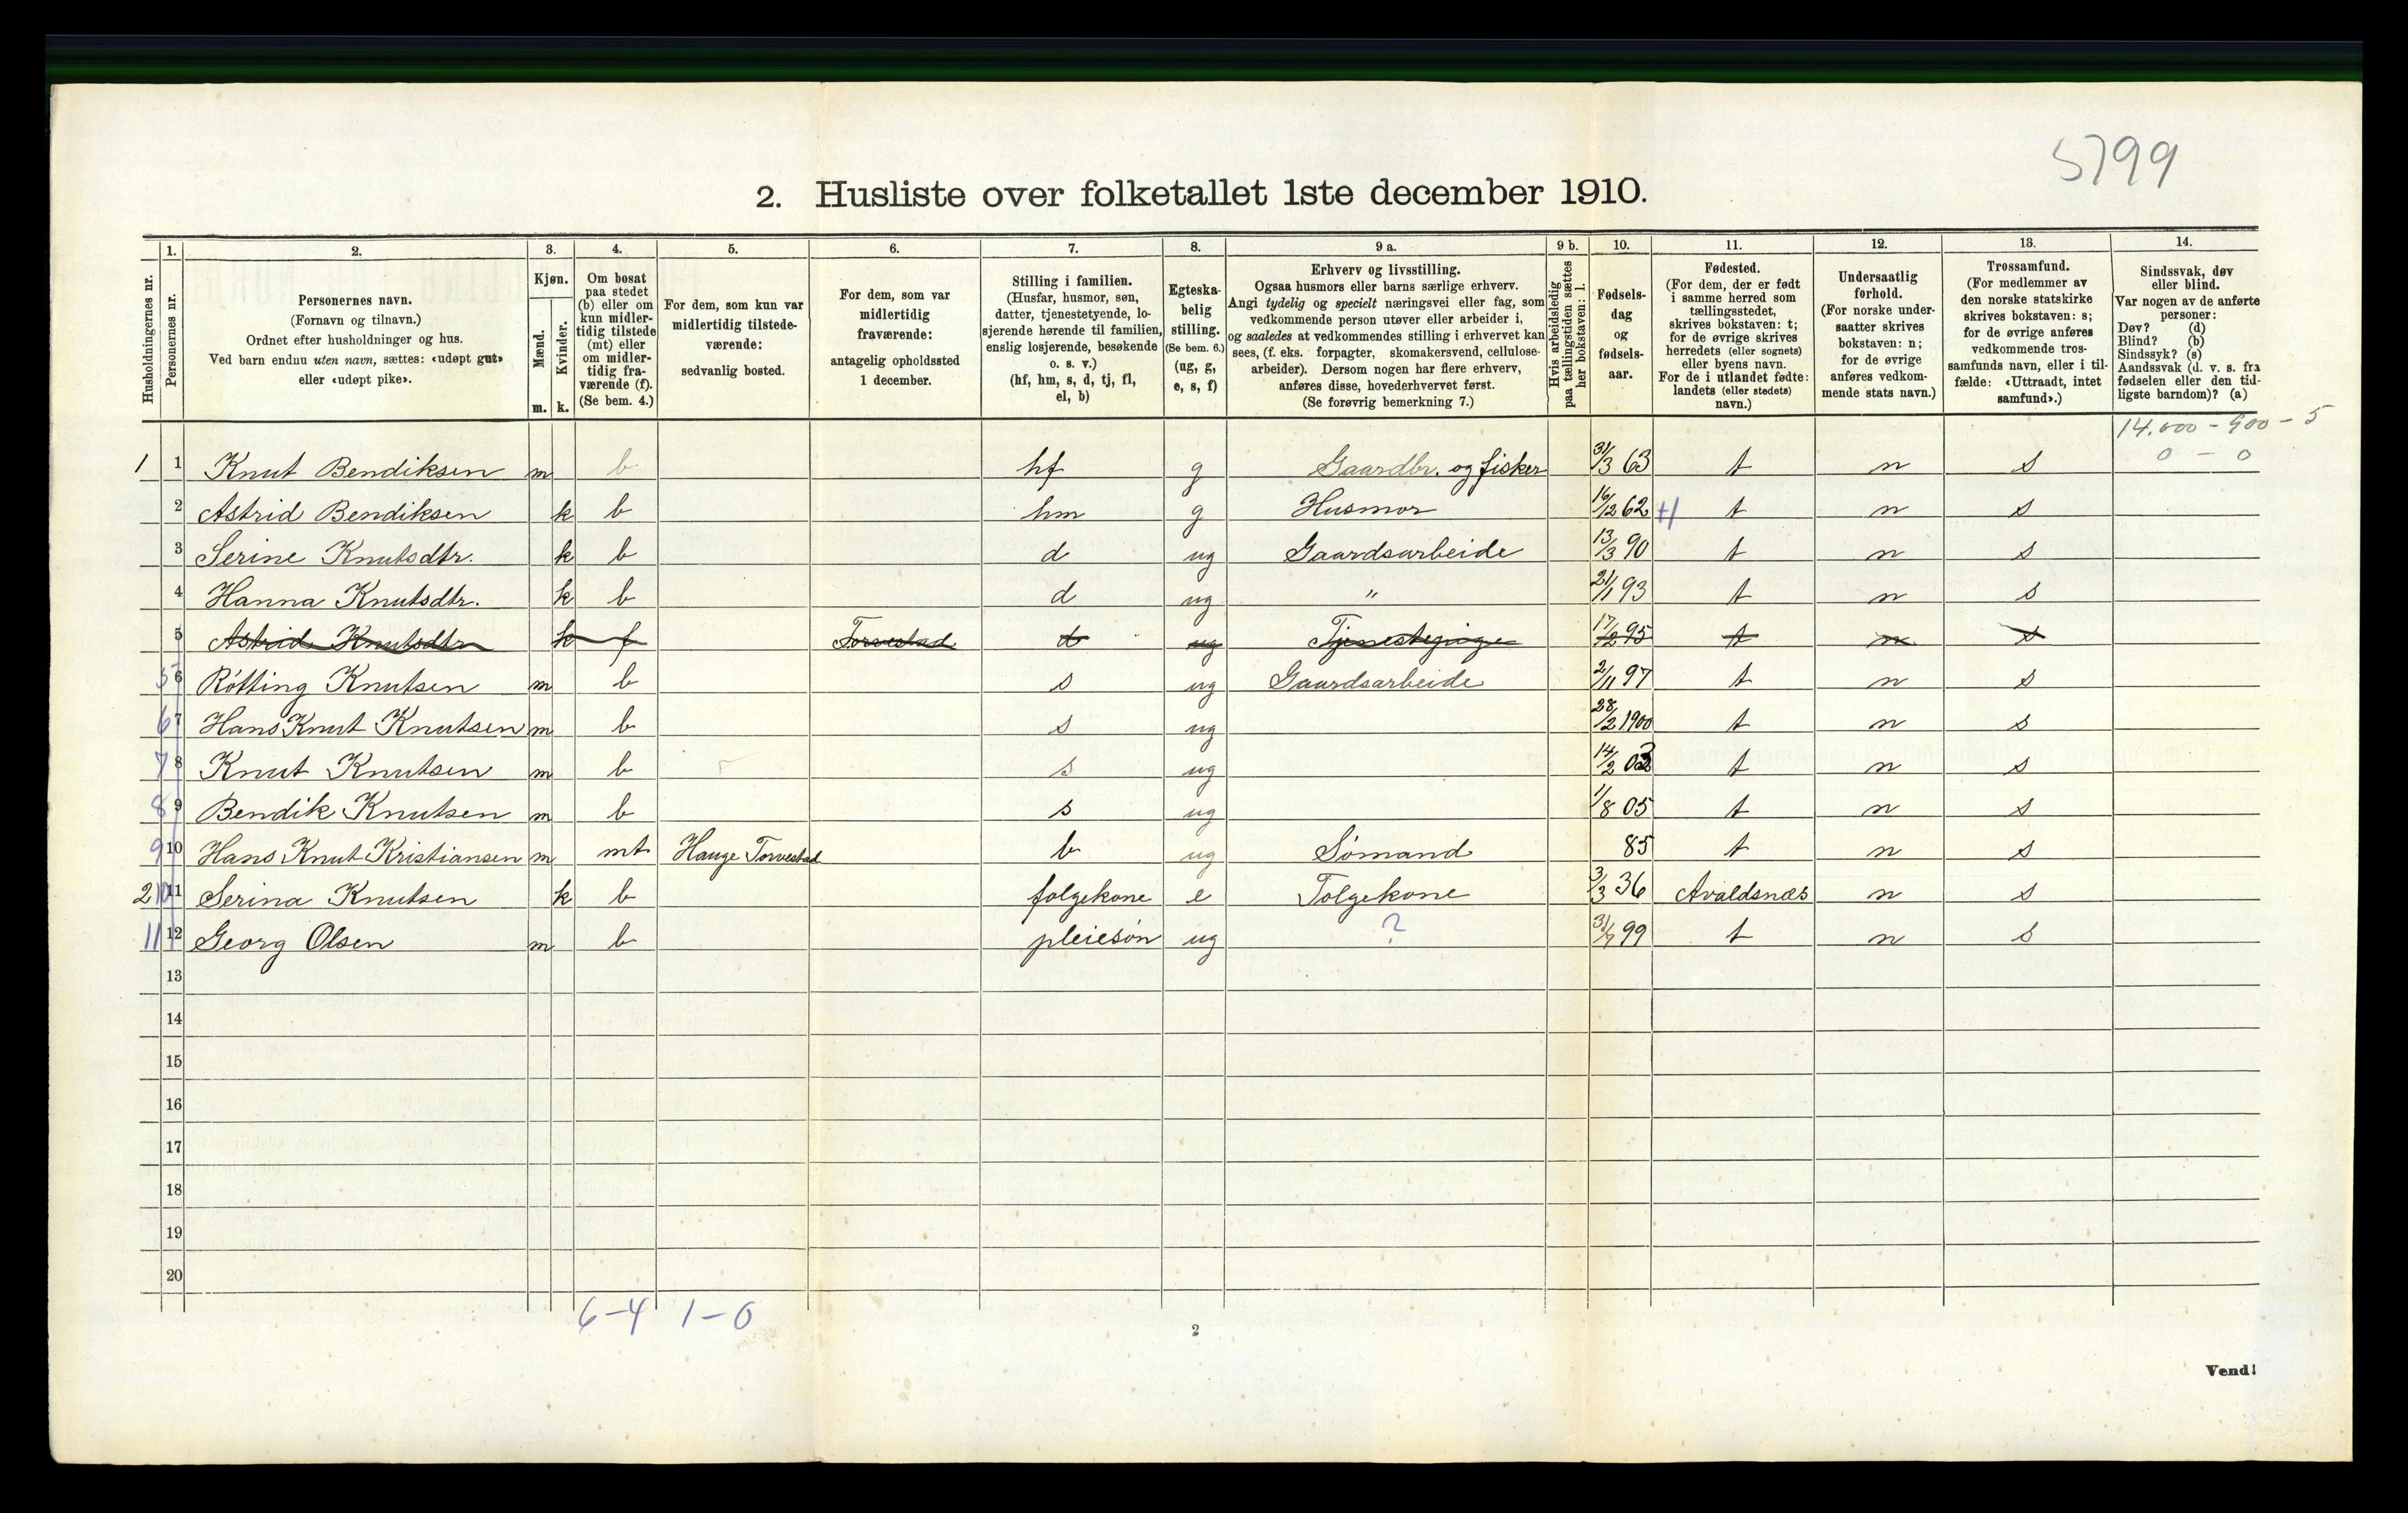 5799
2. Husliste over folketallet 1ste december 1910.
Husholdningernes nr.
1.
Personernes nr.
2.
Personernes navn.
(Fornavn og tilnavn.)
Ordnet efter husholdninger og hus.
Ved barn endnu uten navn, sættes: «udøpt gut»
eller «udøpt pike».
3.
Kjøn.
Mænd.
m.
Kvinder.
k.
4.
Om bosat
paa stedet
(b) eller om
kun midler-
tidig tilstede
(mt) eller
om midler-
tidig fra-
værende (f).
(Se bem. 4.)
5.
For dem, som kun var
midlertidig tilstede-
værende:
sedvanlig bosted.
6.
For dem, som var
midlertidig
fraværende:
antagelig opholdssted
1 december.
7.
Stilling i familien.
(Husfar, husmor, søn,
datter, tjenestetyende, lo-
sjerende hørende til familien,
enslig losjerende, besøkende
o. s. v.)
(hf, hm, s, d, tj, fl,
el, b)
8.
Egteska-
belig
stilling.
(Se bem. 6.)
(ug, g,
e, s, f)
9 a.
Erhverv og livsstilling.
Ogsaa husmors eller barns særlige erhverv.
Angi tydelig og specielt næringsvei eller fag, som
vedkommende person utøver eller arbeider i,
og saaledes at vedkommendes stilling i erhvervet kan
sees, (f. eks. forpagter, skomakersvend, cellulose-
arbeider). Dersom nogen har flere erhverv,
anføres disse, hovederhvervet først.
(Se forøvrig bemerkning 7.)
9 b.
Hvis arbeidsledig
paa tællingstiden sættes
her bokstaven: l.
10.
Fødsels-
dag
og
fødsels-
aar.
11.
Fødested.
(For dem, der er født
i samme herred som
tællingsstedet,
skrives bokstaven: t;
for de øvrige skrives
herredets (eller sognets)
eller byens navn.
For de i utlandet fødte:
landets (eller stedets)
navn.)
12.
Undersaatlig
forhold.
(For norske under-
saatter skrives
bokstaven: n;
for de øvrige
anføres vedkom-
mende stats navn.)
13.
Trossamfund.
(For medlemmer av
den norske statskirke
skrives bokstaven: s;
for de øvrige anføres
vedkommende tros-
samfunds navn, eller i til-
fælde: «Uttraadt, intet
samfund».)
14.
Sindssvak, døv
eller blind.
Var nogen av de anførte
personer:
Døv? (d)
Blind? (b)
Sindssyk? (s)
Aandssvak (d. v. s. fra
fødselen eller den tid-
ligste barndom)? (a)
14.000 - 900 - 5
0 - 0
1 1 Knut Bendiksen m b hf g Gaardbr. og fisker 31/3 63 t n s
2 Astrid Bendiksen k b hm g Husmor 16/12 62 t n s
3 Serine Knutsdtr. k b d ug Gaardsarbeide 13/3 90 t n s
4 Hanna Knutsdtr. k b d ug " 21/1 93 t n s
5 Astrid Knutsdtr k f Torvestad d ug Tjenestepige 17/2 95 t n s
5 6 Rötting Knutsen m b s ug Gaardsarbeide 2/11 97 t n s
6 7 Hans Knut Knutsen m b s ug 28/2 1900 t n s
7 8 Knut Knutsen m b s ug 14/2 03 t n s
8 9 Bendik Knutsen m b s ug 1/8 05 t n s
9 10 Hans Knut Kristiansen m mt Hauge Torvestad b ug Sömand 85 t n s
2 10 11 Serina Knutsen k b folgekone e Folgekone 3/3 36 Avaldsnæs n s
11 12 Georg Olsen m b pleiesön ug ? 31/7 99 t n s
13
14
15
16
17
18
19
20
6-4 1-0
2
Vend!